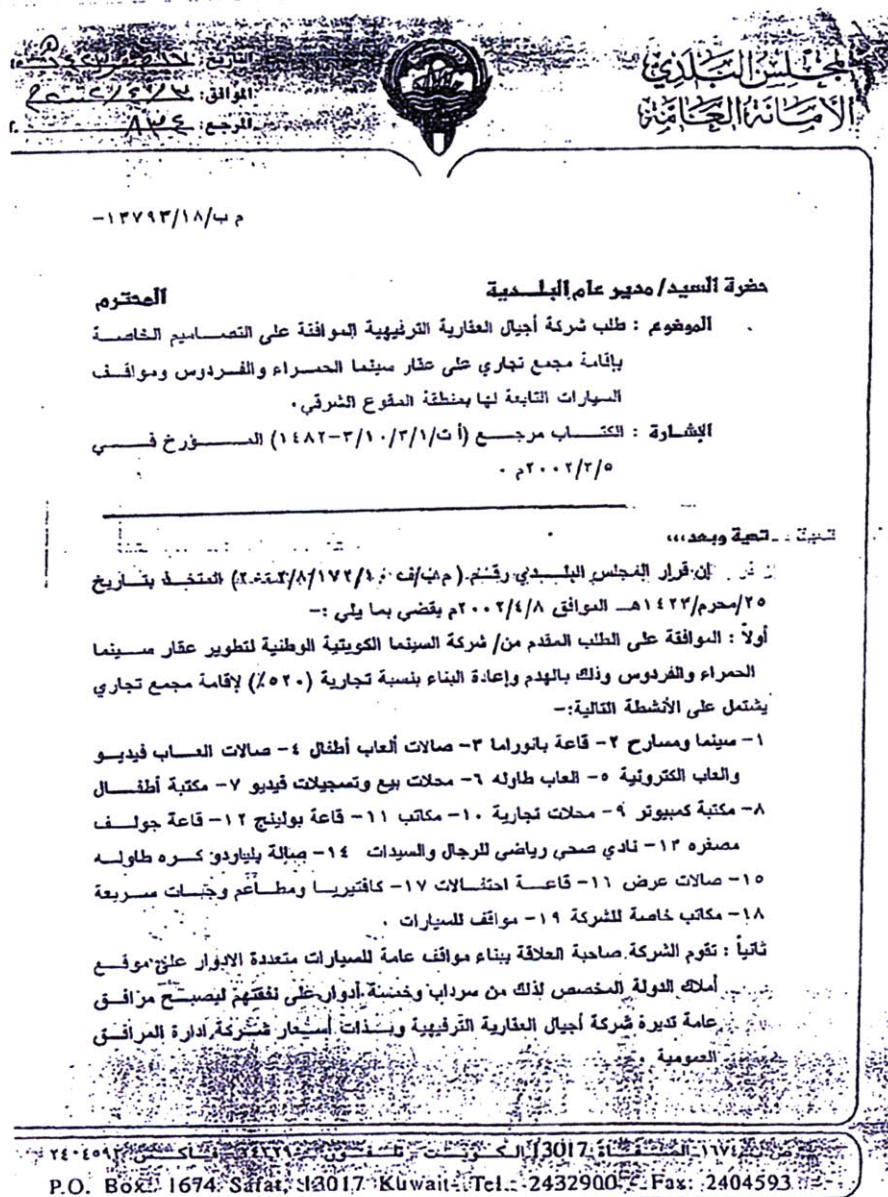 المجلس البلدي
الأمانة العامة
التاريخ:
الموافق:
المرجع: ٨٣٤
م ب/١٨/١٣٧٩٣-
حضرة السيد/ مدير عام البلـــدية المحترم
الموضوع : طلب شركة أجيال العقارية الترفيهية الموافقة على التصــاميم الخاصــة
بإقامة مجمع تجاري على عقار سينما الحمــراء والفــردوس ومواقــف
السيارات التابعة لها بمنطقة المقوع الشرقي.
الإشــارة : الكتـــاب مرجـــع (أ ت/١/٣/١٠/٣-١٤٨٢) المـــؤرخ فـــي
٢٠٠٢/٣/٥م .
تحية وبعد،،،
إن قرار المجلس البلـــدي رقـــم المتخـــذ بتـــاريخ
٢٥/محرم/١٤٢٣هــ الموافق ٢٠٠٢/٤/٨م يقضي بما يلي :-
أولاً : الموافقة على الطلب المقدم من/ شركة السينما الكويتية الوطنية لتطوير عقار ســـينما
الحمراء والفردوس وذلك بالهدم وإعادة البناء بنسبة تجارية (٥٢٠٪) لإقامة مجمع تجاري
يشتمل على الأنشطة التالية:-
١- سينما ومسارح ٢- قاعة بانوراما ٣- صالات ألعاب أطفال ٤- صالات العـــاب فيديـــو
والعاب الكترونية ٥- العاب طاوله ٦- محلات بيع وتسجيلات فيديو ٧- مكتبة أطفـــال
٨- مكتبة كمبيوتر ٩- محلات تجارية ١٠- مكاتب ١١- قاعة بولينج ١٢- قاعة جولـــف
مصغره ١٣- نادي صحي رياضي للرجال والسيدات ١٤- صالة بلياردو كـــره طاولـــه
١٥- صالات عرض ١٦- قاعـــة احتفـــالات ١٧- كافتيريـــا ومطـــاعم وجبـــات ســـريعة
١٨- مكاتب خاصة للشركة ١٩- مواقف للسيارات .
ثانياً : تقوم الشركة صاحبة العلاقة ببناء مواقف عامة للسيارات متعددة الادوار على موقـــع
أملاك الدولة المخصص لذلك من سرداب وخمسة أدوار على نفقتهم ليصبـــح مرافـــق
عامة تديرة شركة أجيال العقارية الترفيهية وبـــذات أسعار شـــركة ادارة المرافـــق
العمومية
ص.ب ١٦٧٤ الصفاة 13017 الكويت تلفون فاكس ٢٤٠٤٥٩٣
P.O. Box: 1674 Safat, 13017 Kuwait Tel.: 2432900 Fax: 2404593